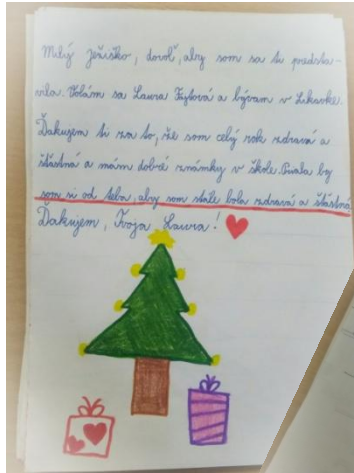 Milý Ježiško, dovoľ, aby som sa ti predsta-
vila. Volám sa Laura Fajtová a bývam v Likavke.
Ďakujem ti za to, že som celý rok zdravá a
šťastná a mám dobré známky v škole. Priala by
som si od teba, aby som stále bola zdravá a šťastná.
Ďakujem, Tvoja Laura!